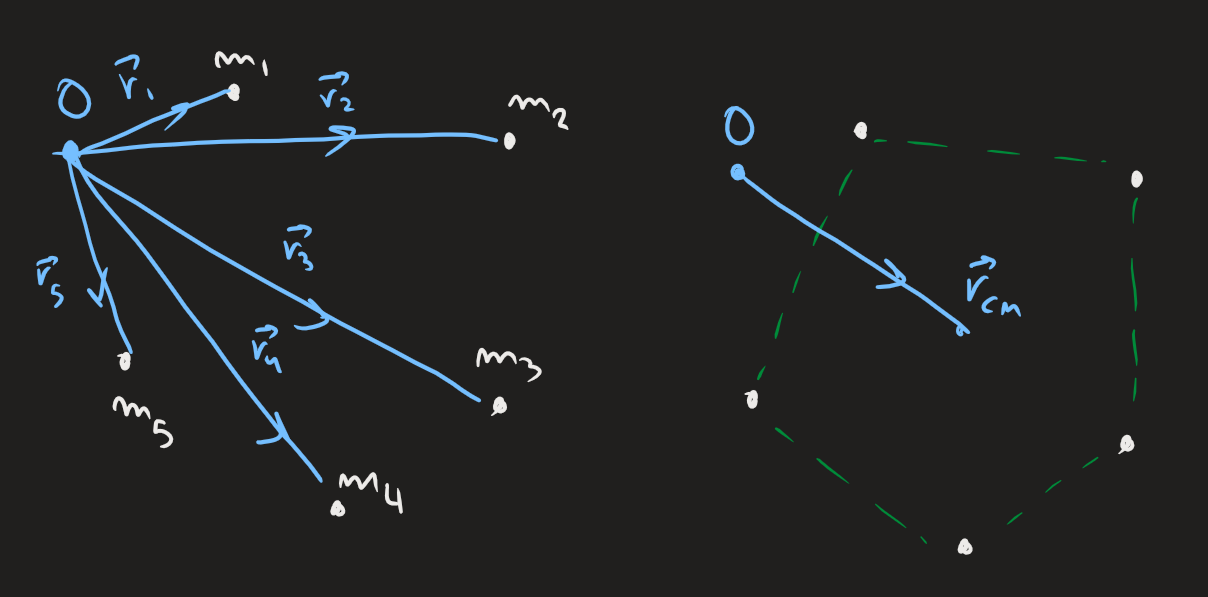 O
r⃗₁
m₁
r⃗₂
m₂
r⃗₃
r⃗₅
r⃗₄
m₃
m₅
m₄
O
r⃗cm